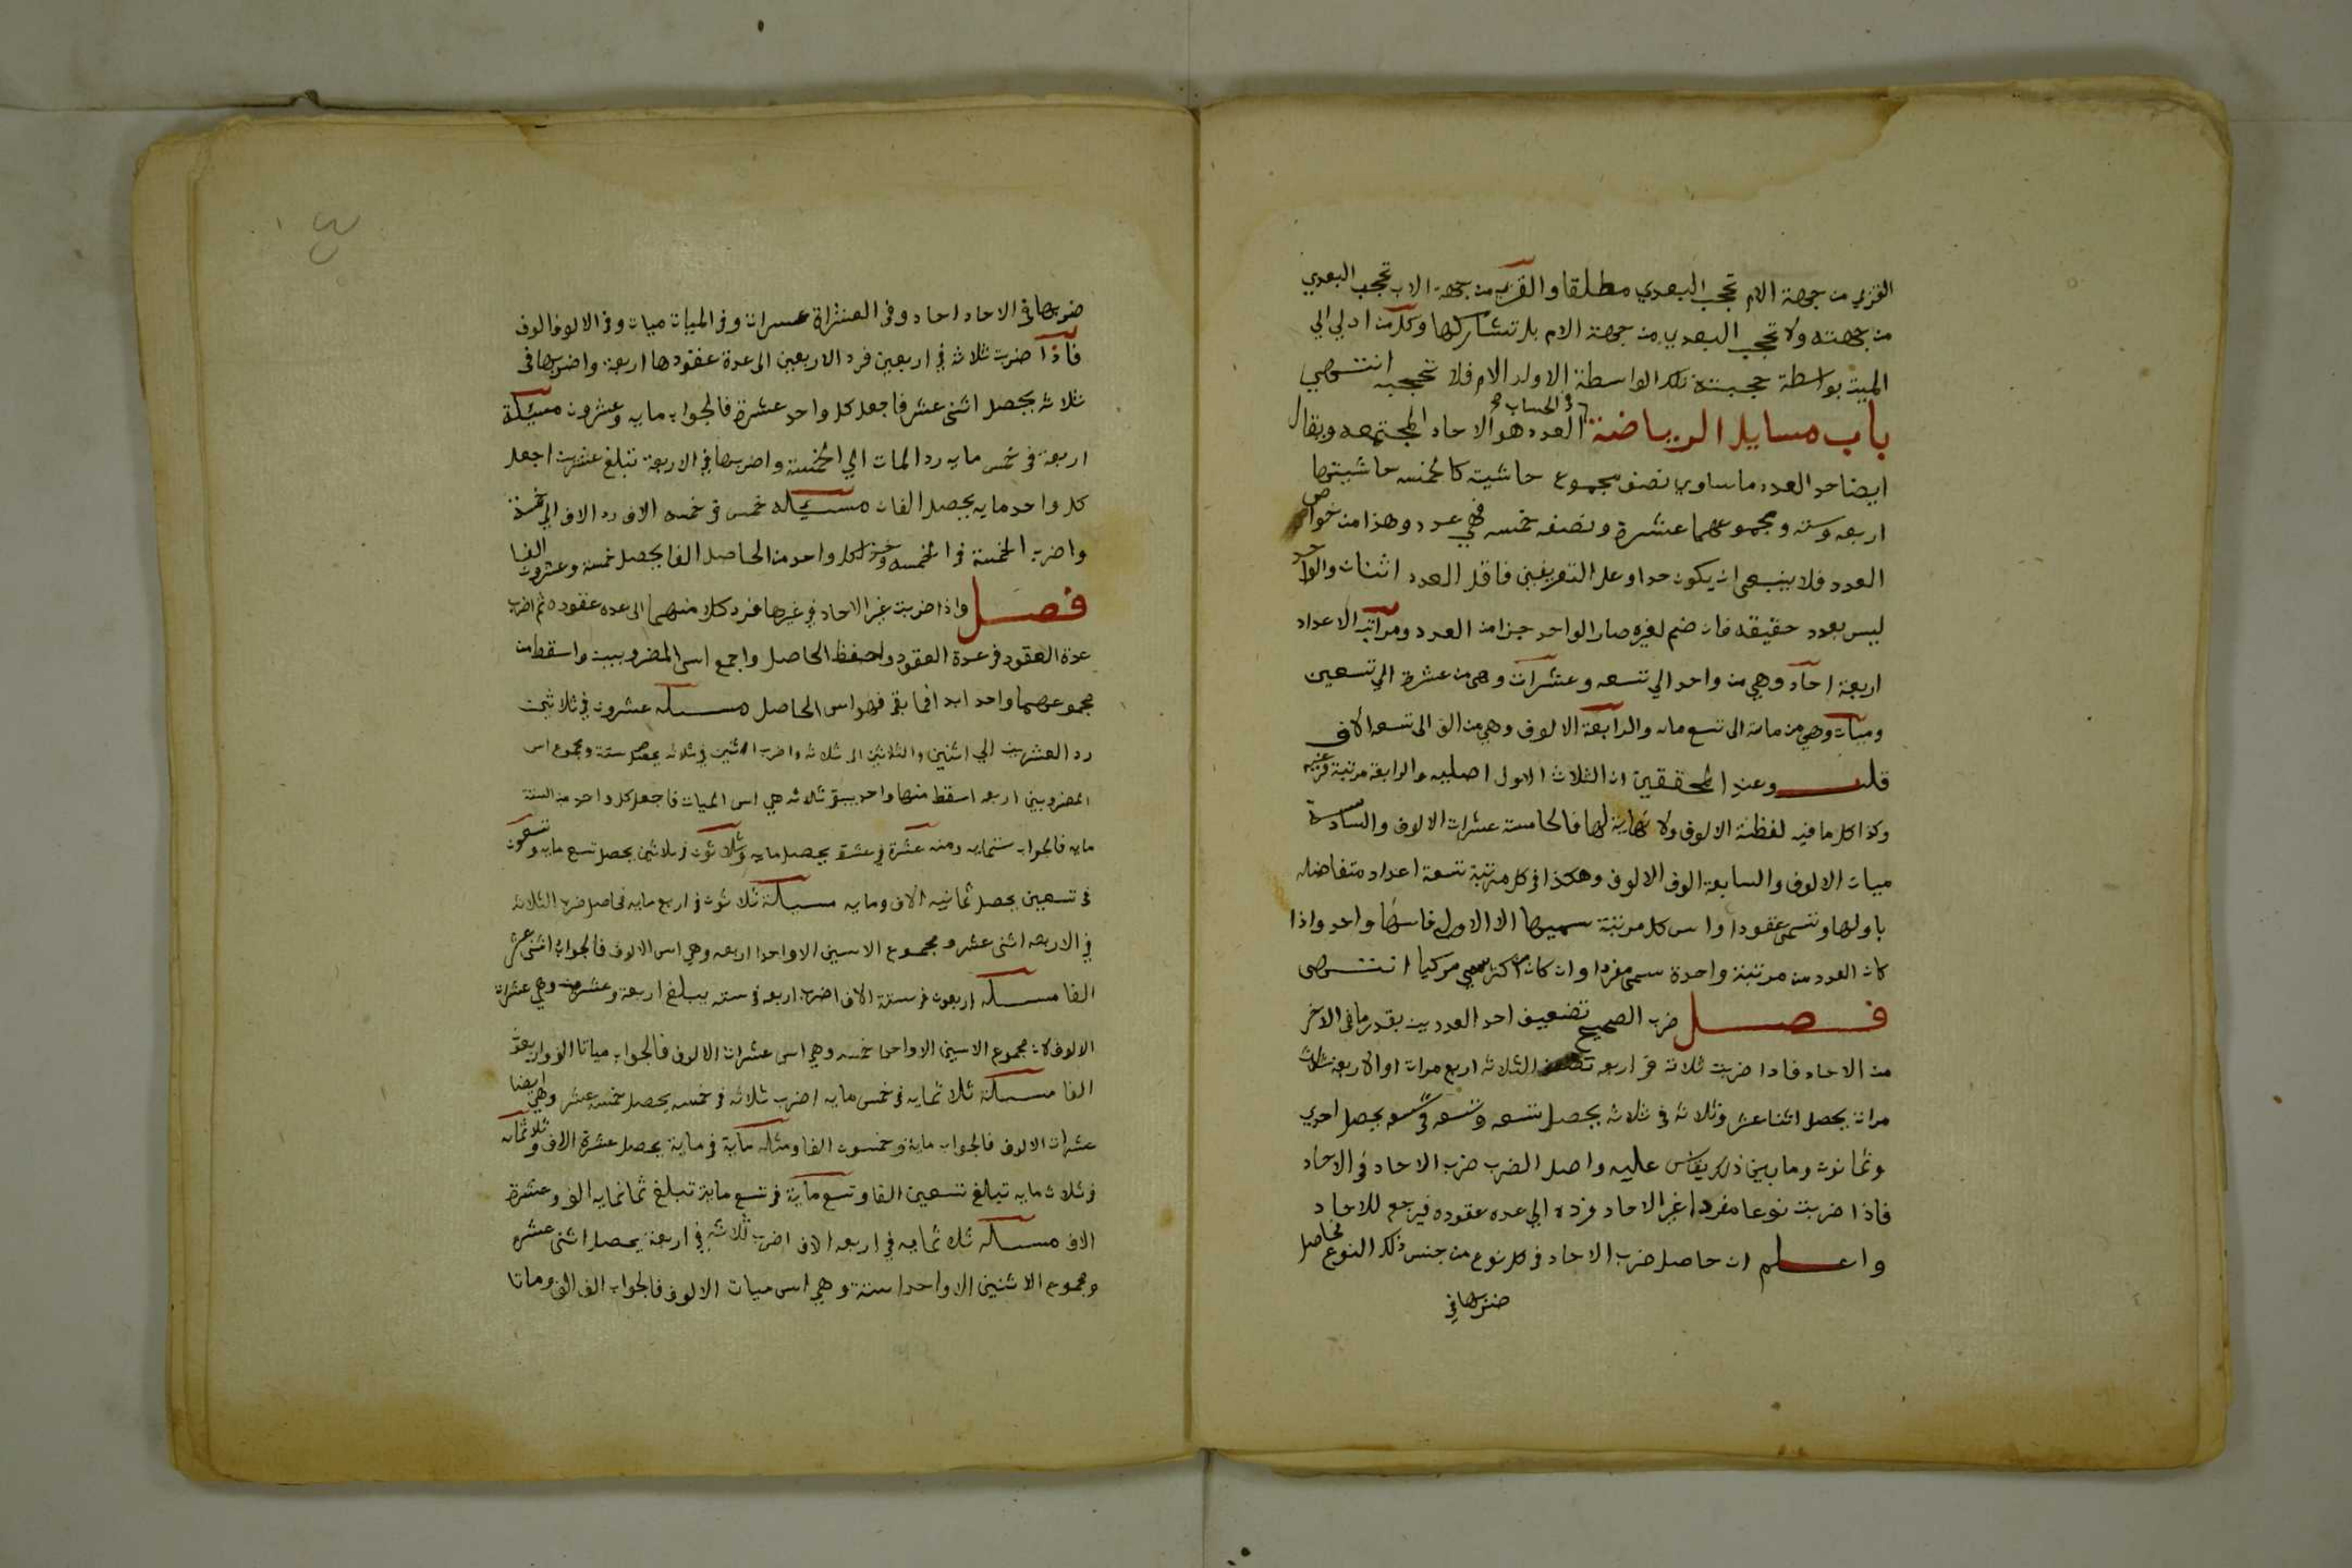 القربي من جهة الام تحجب البعدي مطلقا والقربي من جهة الاب تحجب البعدي
من جهته ولا تحجب البعدي من جهة الام بل تشاركها وكل من ادلي الي
الميت بواسطة حجبته تلك الواسطة الا ولد الام فلا تحجبه انتهي
باب مسايل الرياضة في الحساب العدد هو الاحاد المجتمعه ويقال
ايضا حد العدد ما ساوي نصف مجموع حاشيته كالخمسه حاشيتها
اربعه وسته ومجموعهما عشرة ونصفه خمسه فهي عدد وهذا من خواص
العدد فلا ينبغي ان يكون حدا وعلى التعريفين فاقل العدد اثنان والواحد
ليس بعدد حقيقه فان ضم لغيره صار الواحد جزا من العدد ومراتب الاعداد
اربعة احاد وهي من واحد الي تسعه وعشرات وهي من عشرة الي تسعين
وميات وهي من ماية الى تسع مايه والرابعة الالوف وهي من الف الى تسعه الاف
قلت وعند المحققين ان الثلاث الاول اصليه والرابعة مرتبة فرعيه
وكذا كل ما فيه لفظة الالوف ولا نهاية لها فالخامسة عشرات الالوف والسادسة
ميات الالوف والسابعة الوف الالوف وهكذا في كل مرتبة تسعة اعداد متفاضله
باولها وتسمى عقودا واس كل مرتبة سميها الا الاولى فاسها واحد واذا
كان العدد من مرتبة واحدة سمي مفردا وان كان من اكثر سمي مركبا انتهى
فصل ضرب الصحيح تضعيف احد العددين بقدر ما في الاخر
من الاحاد فاذا ضربت ثلاثة في اربعه تضعف الثلاثه اربع مرات او الاربعة ثلاث
مرات يحصل اثنا عشر وثلاثه في ثلاثه يحصل تسعه وتسعه في تسعه يحصل احدي
وثمانون وما بين ذلك يقاس عليه واصل الضرب ضرب الاحاد في الاحاد
فاذا ضربت نوعا مفردا غير الاحاد فرده الي عده عقوده فيرجع للاحاد
واعلم ان حاصل ضرب الاحاد في كل نوع من جنس ذلك النوع فحاصل
ضربها في
ضربها في الاحاد احاد وفي العشرات عشرات وفي الميات ميات وفي الالوف الوف
فاذا ضربت ثلاثه في اربعين فرد الاربعين الى عدة عقودها اربعة واضربها في
ثلاثه يحصل اثنى عشر فاجعل كل واحد عشرة فالجواب مايه وعشرون مسئلة
اربعة في خمس مايه رد المات الي الخمسة واضربها في الاربعة تبلغ عشرين اجعل
كل واحد مايه يحصل الفان مسئله خمس في خمسه الاف رد الاف الي خمسة
واضرب الخمسة في الخمسه وخذ لكل واحد من الحاصل الفا يحصل خمسة وعشرون الفا
فصل واذا ضربت غير الاحاد في غيرها فرد كلا منهما الى عده عقوده ثم اضرب
عدة العقود في عدة العقود واحفظ الحاصل واجمع اس المضروبين واسقط من
مجموعهما واحد ابدا فما بقي فهو اس الحاصل مسئله عشرون في ثلاثين
رد العشرين الي اثنين والثلاثين الى ثلاثه واضرب اثنين في ثلاثه يحصل ستة ومجموع اس
المضروبين اربعه اسقط منها واحد يبقي ثلاثه هي اس الميات فاجعل كل واحد من الستة
مايه فالجواب ستمايه ومنه عشرة في عشرة يحصل مايه وثلاثون في ثلاثين يحصل تسع مايه وتسعون
في تسعين يحصل ثمانيه الاف ومايه مسئلة ثلاثون في اربع مايه فحاصل ضرب الثلاثه
في الاربعه اثنى عشر ومجموع الاسين الا واحدا اربعه وهي اس الالوف فالجواب اثنى عشر
الفا مسئله اربعون في ستة الاف اضرب اربعه في سته يبلغ اربعة وعشرين وهي عشرات
الالوف لان مجموع الاسين الا واحدا خمسه وهي اس عشرات الالوف فالجواب مياتا الف واربعون
الفا مسئلة ثلاثمايه في خمس مايه اضرب ثلاثه في خمسه يحصل خمسه عشر وهي ايضا
عشرات الالوف فالجواب ماية وخمسون الفا ومثله ماية في ماية يحصل عشرة الاف وثلاثمايه
في ثلاث مايه تبلغ تسعين الفا وتسع ماية في تسع ماية تبلغ ثمانمايه الف وعشرة
الاف مسئله ثلاثمايه في اربعه الاف اضرب ثلاثه في اربعة يحصل اثنى عشر
ومجموع الاثنين الا واحدا ستة وهي اس ميات الالوف فالجواب الف الف ومائتا